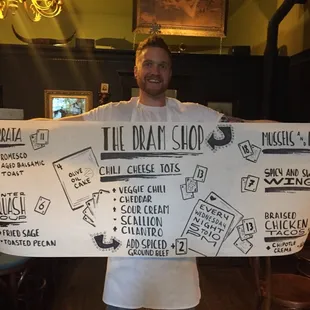 THE DRAM SHOP
RATA
11
ROMESCO
AGED BALSAMIC
TOAST
NTER
ASH
6
FRIED SAGE
TOASTED PECAN
4
OLIVE OIL
CAKE
CHILI CHEESE TOTS
13
+ VEGGIE CHILI
+ CHEDDAR
+ SOUR CREAM
+ SCALLION
+ CILANTRO
ADD SPICED
GROUND BEEF
+ 2
EVERY
WEDNESDAY
NIGHT
13
MUSSELS
14
7
SPICY AND SW
WING
13
BRAISED
CHICKEN
TACOS
+ CHIPOTLE
CREMA